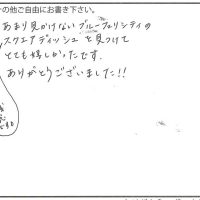 の他ご自由にお書き下さい。
あまり見かけないブルーフェリシティの
スクエアディッシュを見つけて
とても嬉しかったです。
ありがとうございました!!